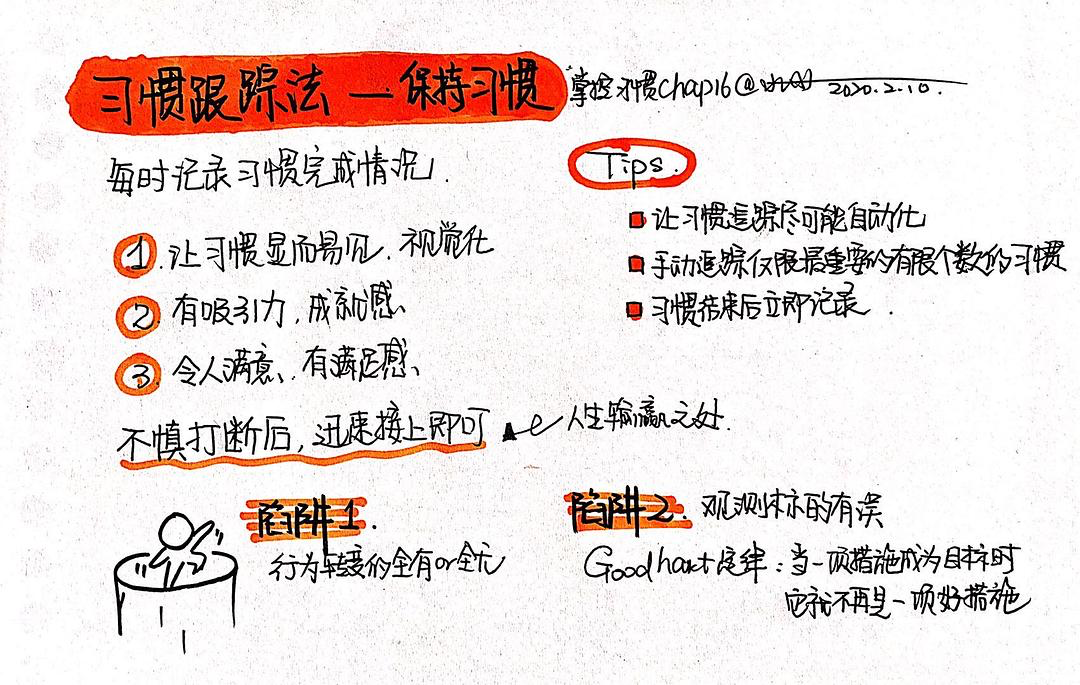 习惯跟踪法 — 保持习惯
掌控习惯chap16@ 2020.2.10.
每时记录习惯完成情况.
1. 让习惯显而易见、视觉化
2. 有吸引力,成就感、
3. 令人满意、有满足感、
不慎打断后,迅速接上即可
人生输赢之处.
Tips.
让习惯追踪尽可能自动化
手动追踪仅限最重要的有限个数的习惯
习惯结束后立即记录.
陷阱1.
行为转变的全有or全无
陷阱2. 观测标的有误
Goodhart定律:当一项措施成为目标时
它就不再是一项好措施